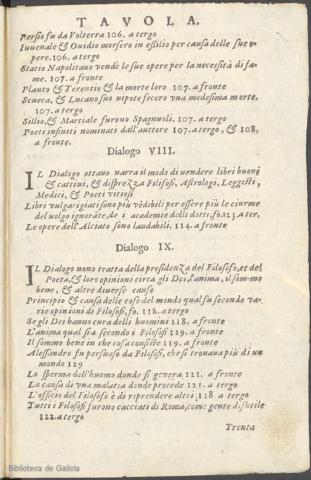 TAVOLA.
Persio fu da Volterra 106. a tergo
Iuuenale & Ouidio morsero in essilio per causa delle sue o-
pere. 106. a tergo
Statio Napolitano vende le sue opere per la necesità di fa-
me. 107. a fronte
Plauto & Terentio & la morte loro 107. a fronte
Seneca, & Lucano suo nipote fecero vna medesima morte.
107. a tergo
Sillio, & Martiale furono Spagnuoli. 107. a tergo
Poeti infiniti nominati dall'auttore 107. a tergo, & 108,
a fronte.
Dialogo VIII.
IL Dialogo ottauo narra il modo di vendere libri buoni
& cattiui, & disprezza Filosofi, Astrologi, Leggisti,
Medici, & Poeti vitiosi
Libri vulgari piati sono più vedibili per essere più le ciurme
del uolgo ignorāte, de i academie delli dotti, fo. 113. a ter.
Le opere dell'Alciato sono laudabili. 114. a fronte
Dialogo IX.
IL Dialogo nono tratta della presidenza del Filosofo, et del
Poeta, & loro opinioni circa gli Dei, l'anima, il sommo
bene, & altre diuerse cause
Principio & causa delle cose del mondo qual fu secondo va-
rie opinioni di Filosofi, fo. 118. a tergo
Se gli Dei hanno cura delli huomini 118. a fronte
L'anima qual sia secondo i Filosofi 119. a fronte
Il sommo bene in che cosa consiste 119. a fronte
Alessandro fu persuaso da Filosofi, che si trouaua più di un
mondo 129
Lo sperma dell'huomo donde si genera 121. a fronte
La causa di vna malatia donde procede 121. a tergo
L'officio del Filosofo è di riprendere altri 118 a tergo
Tutti i Filosofi furono cacciati di Roma, come gente disutile
122. a tergo
Trenta
Biblioteca de Galicia